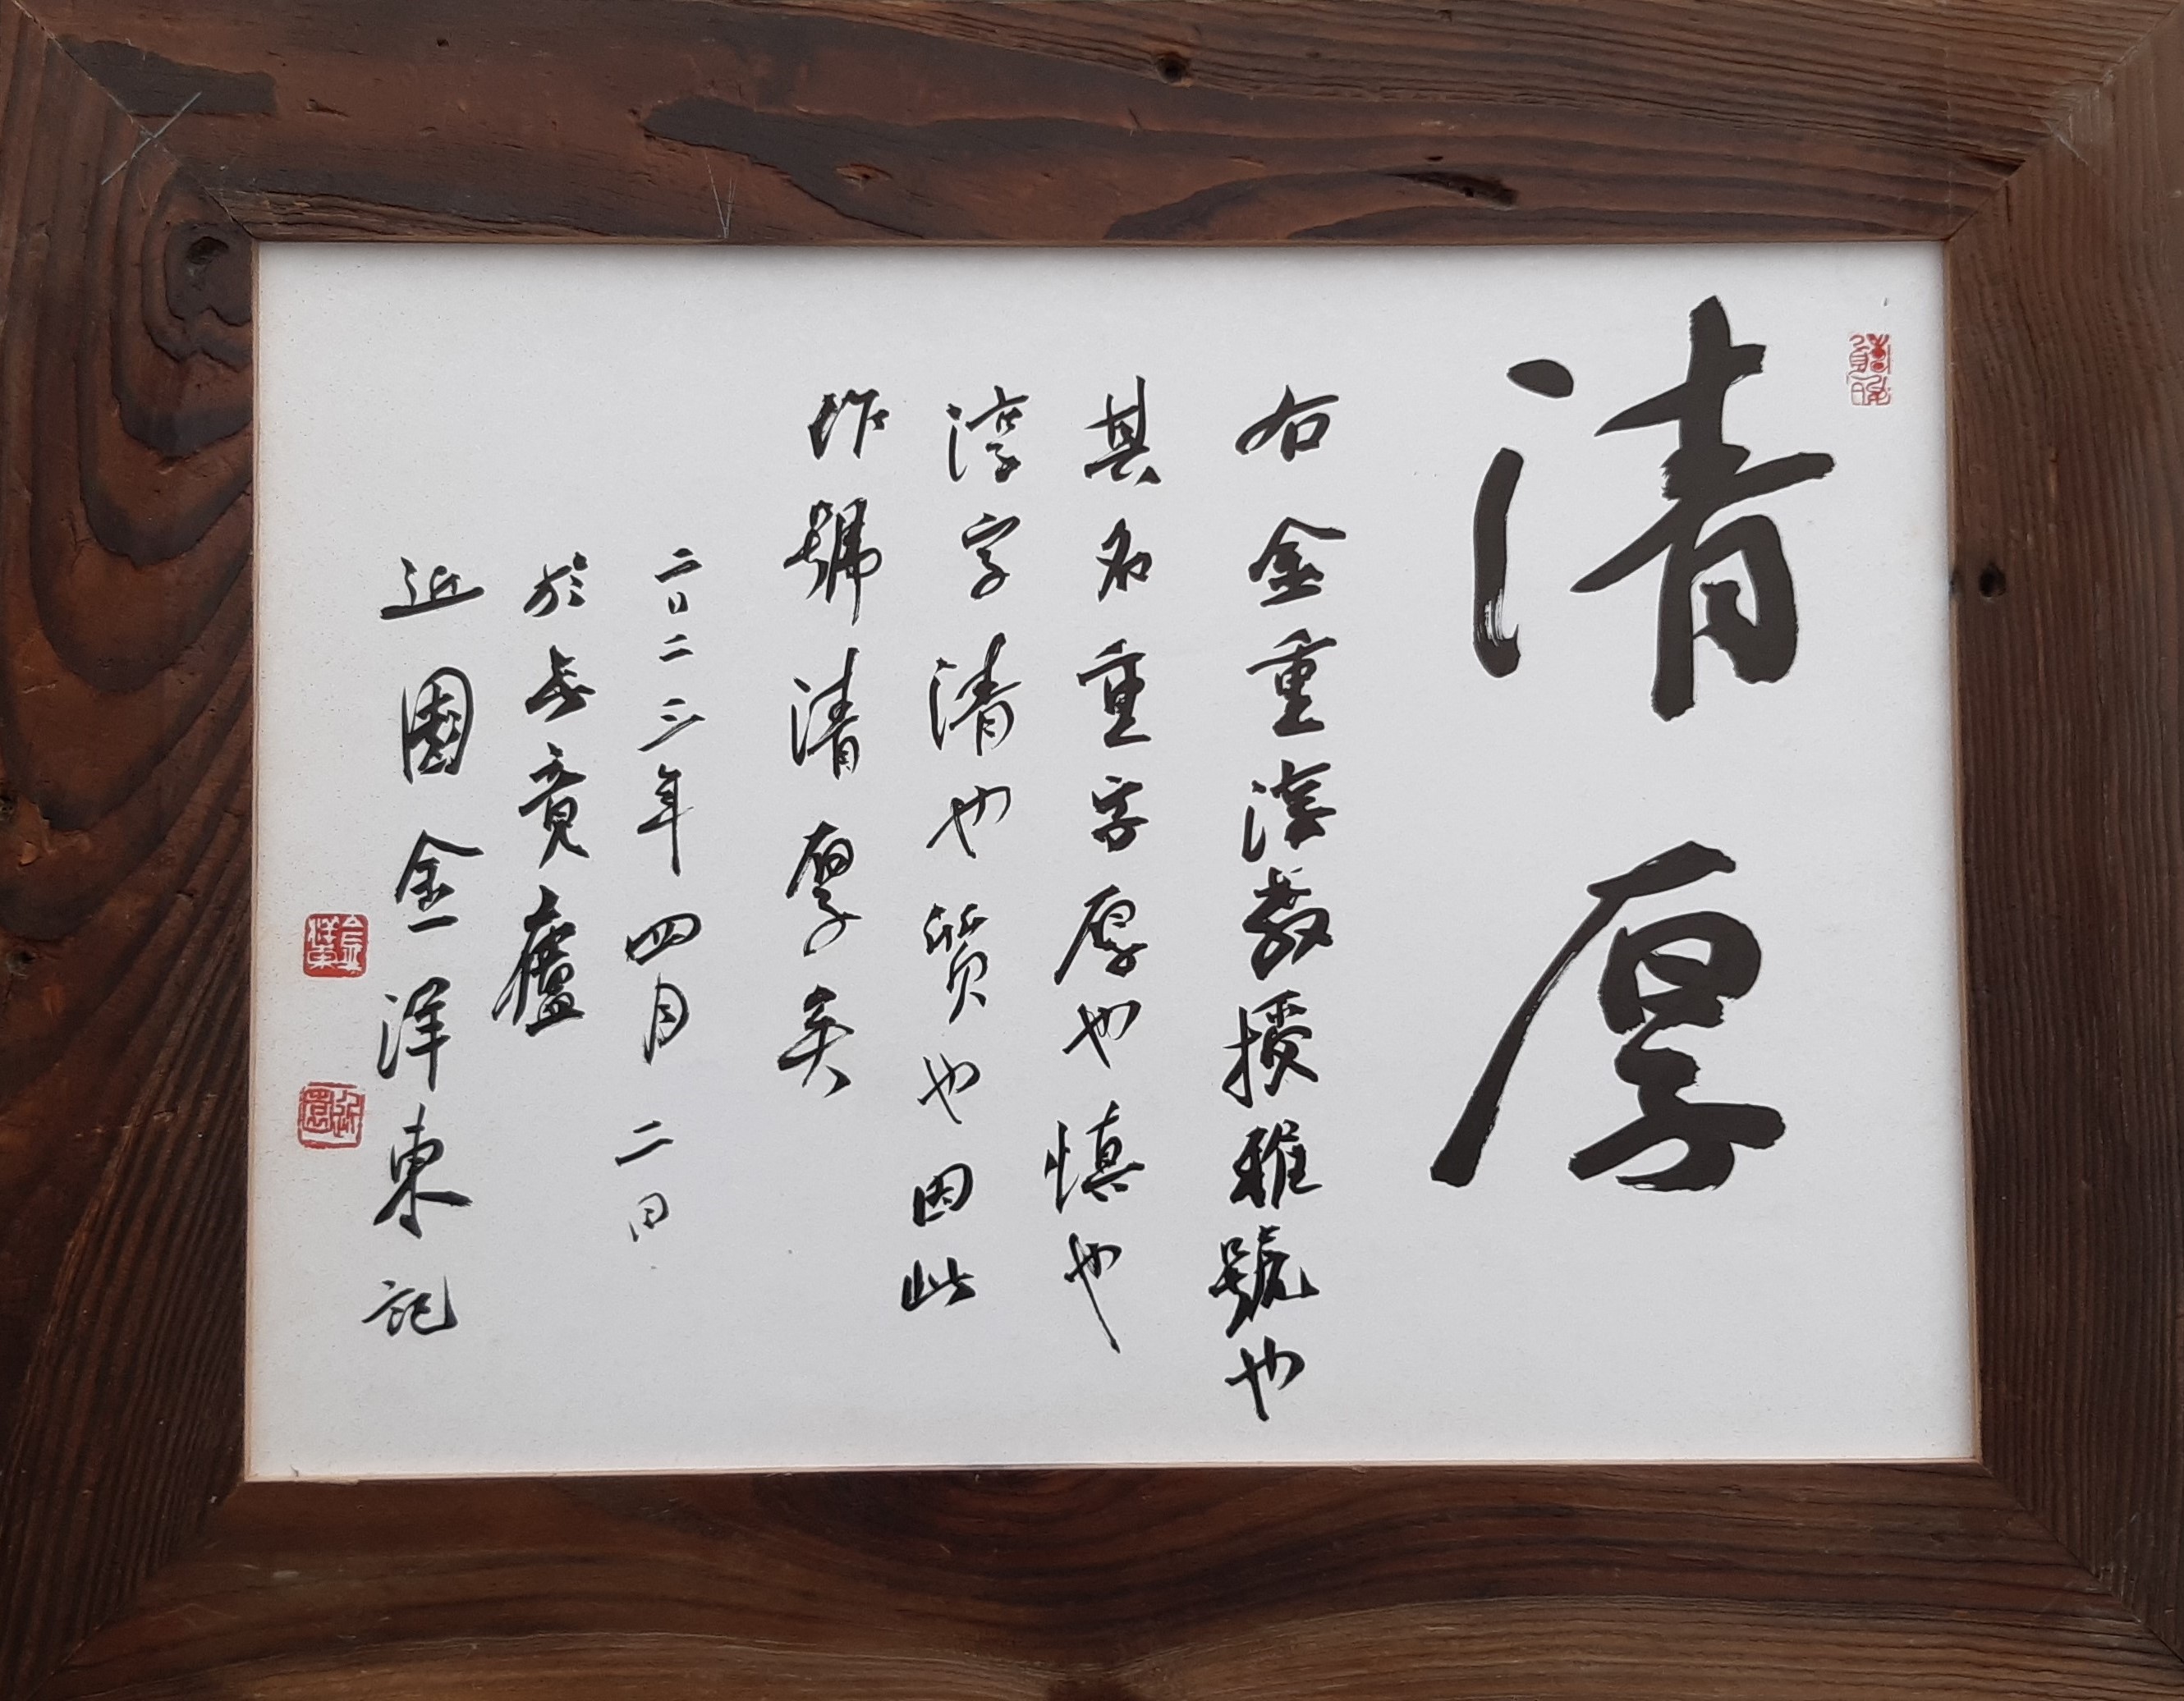 清厚
右金重淳教授雅號也
其名重字厚也慎也
淳字清也質也因此
作號清厚矣
二〇二三年四月二日
於長竟廬
近園金洋東記
金洋東
近園